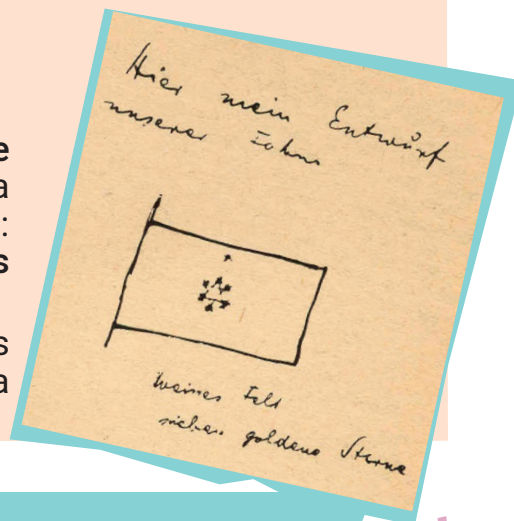 e
a
:
s
s
a
Hier mein Entwurf
unserer Fahne
weises Feld
sieben goldene Sterne